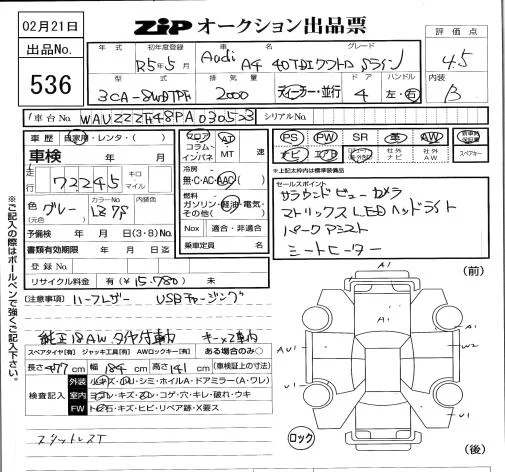 02月21日
ZIP オークション出品票
出品No.
536
年式 初年度登録 車名 グレード
R5年5月 Audi A4 40TDIクワトロ Sライン
評価点
4.5
型式 排気量 ドア ハンドル
3CA-8WDTPF 2000 ディーラー・並行 4 左・右
内装
B
車台No. WAUZZZF48PA030523 シリアルNo.
車歴 自家用・レンタ・( )
車検 年 月
走行 72245 キロ マイル
色 グレー (元色) カラーNo. LZ7S 内装色
予備検 年 月 日(3・8)No.
書類有効期限 年 月 日迄
登録No.
リサイクル料金 有(¥15.780) 未
フロア コラム インパネ AT MT 速
冷房 無・C・AC・AAC( )
燃料 ガソリン・軽油・電気・その他( )
Nox 適合・非適合
乗車定員 名
PS PW SR 革 AW
ナビ エアB 社外ナビ 社外AW スペアキー
※上記太枠内は標準装備品
セールスポイント
サラウンドビューカメラ
マトリックスLEDヘッドライト
パークアシスト
シートヒーター
※ご記入の際はボールペンで強くご記入下さい。
(注意事項) ハーフレザー USBチャージング
純正18AW タイヤ付車内 キー×2車内
スペアタイヤ[有] ジャッキ工具[有] AWロックキー[有] ある場合のみ○
長さ477cm 幅184cm 高さ141cm (車検証上の寸法)
検査記入
外装 小キズ・凹U・シミ・ホイルA・ドアミラー(A・ワレ)
室内 ヨゴレ・キズ・スレ・コゲ・穴・キレ・破れ・ウキ
FW トビ石・キズ・ヒビ・リペア跡・X要ス
スタットレスT
(前)
A1
A1
A1
AU1
W2
U1
U1
ロック
(後)